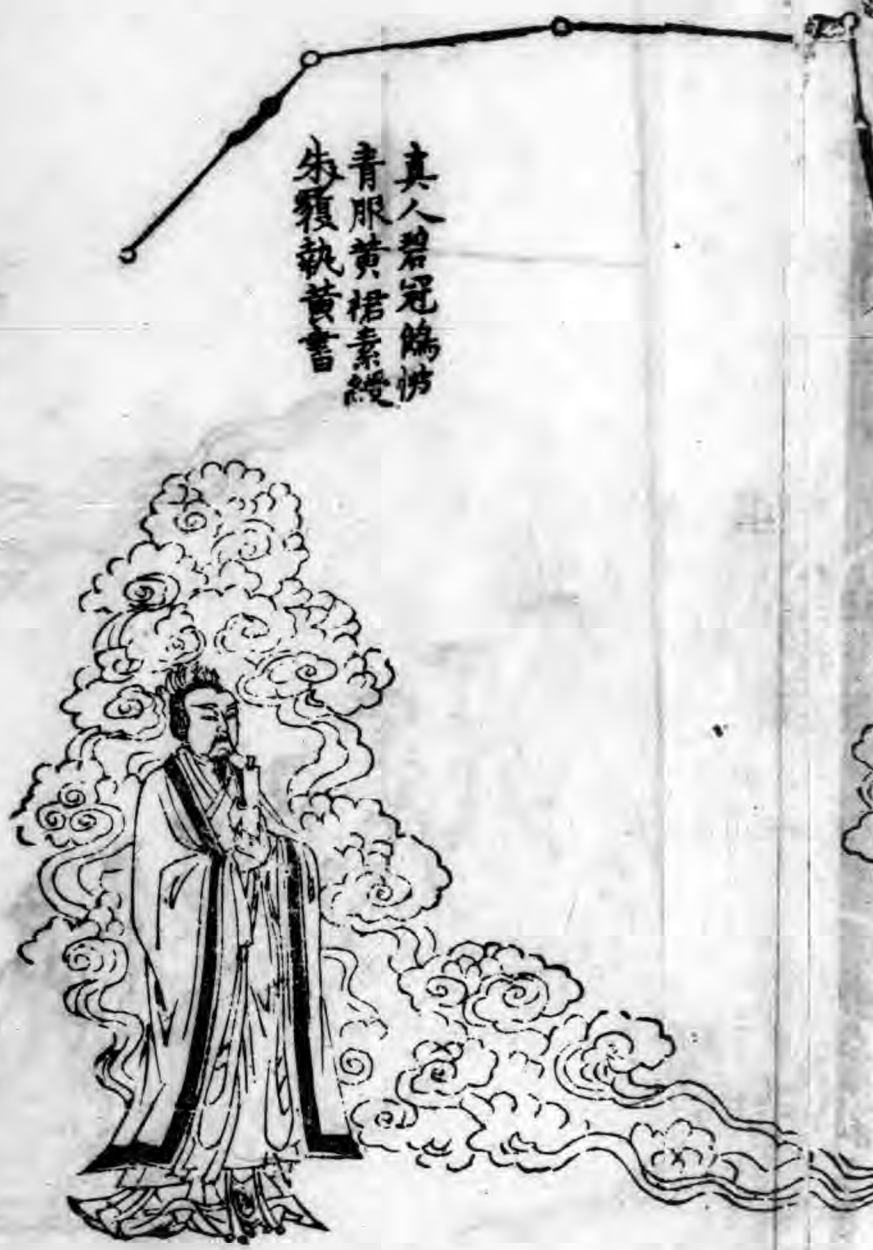 真人碧冠
青服黄裙素綬
朱履執黄書